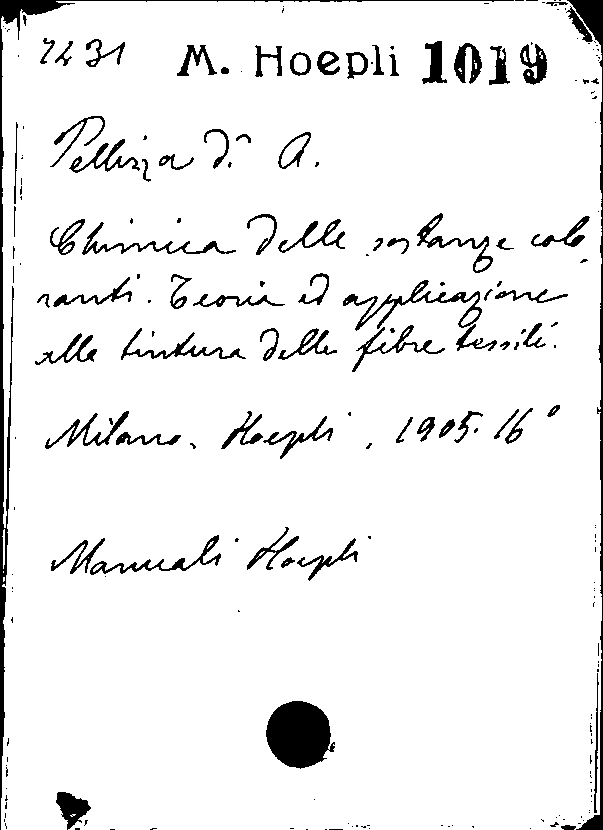 7231 M. Hoepli 1019
Pellizza d.r A.
Chimica delle sostanze colo
ranti. Teoria ed applicazione
alla tintura delle fibre tessili.
Milano, Hoepli, 1905. 16°
Manuali Hoepli